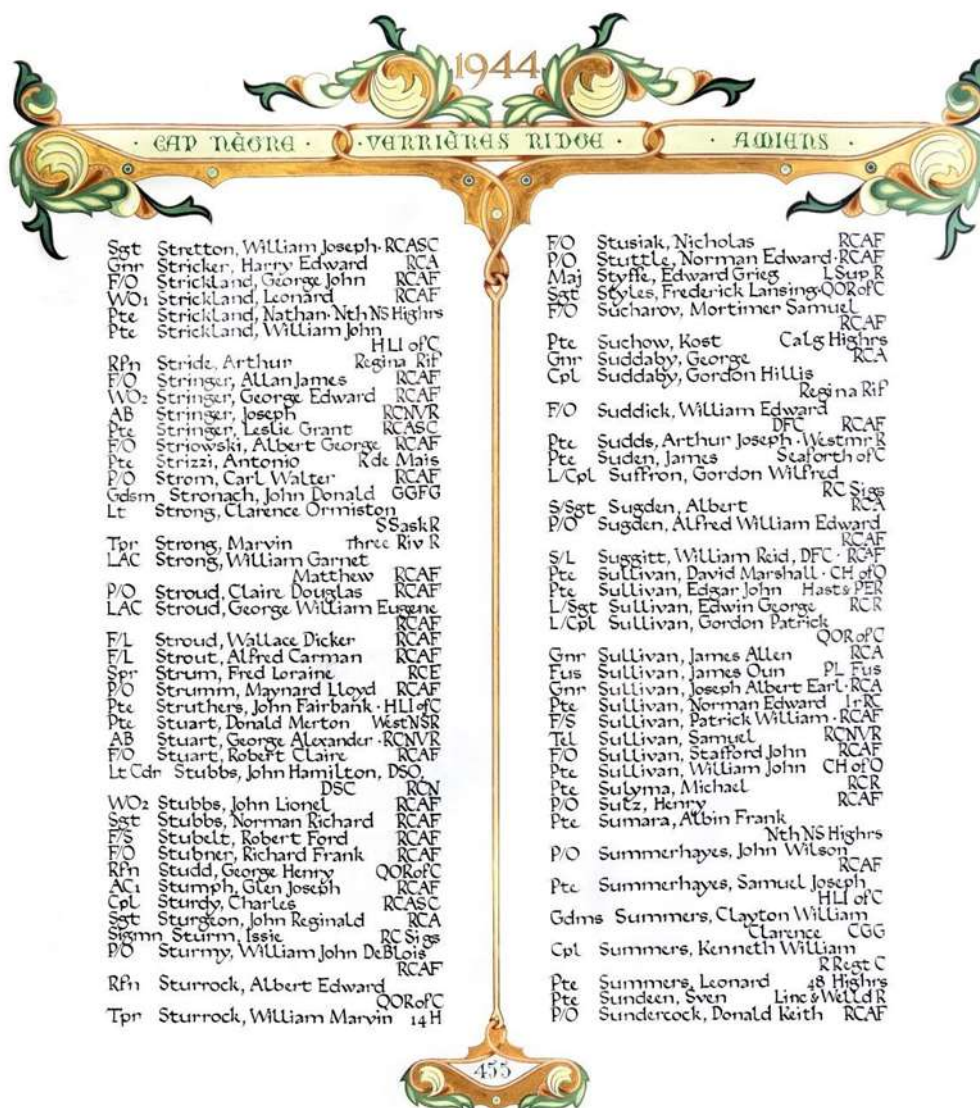 1944
· CAP NÈGRE · · VERRIÈRES RIDGE · · AMIENS ·
Sgt Stretton, William Joseph · RCASC
Gnr Stricker, Harry Edward RCA
F/O Strickland, George John RCAF
WO1 Strickland, Leonard RCAF
Pte Strickland, Nathan · Nth NS Highrs
Pte Strickland, William John
HLI of C
Rfn Stride, Arthur Regina Rif
F/O Stringer, Allan James RCAF
WO2 Stringer, George Edward RCAF
AB Stringer, Joseph RCNVR
Pte Stringer, Leslie Grant RCASC
F/O Striowski, Albert George RCAF
Pte Strizzi, Antonio R de Mais
P/O Strom, Carl Walter RCAF
Gdsm Stronach, John Donald GGFG
Lt Strong, Clarence Ormiston
S Sask R
Tpr Strong, Marvin Three Riv R
LAC Strong, William Garnet
Matthew RCAF
P/O Stroud, Claire Douglas RCAF
LAC Stroud, George William Eugene
RCAF
F/L Stroud, Wallace Dicker RCAF
F/L Strout, Alfred Carman RCAF
Spr Strum, Fred Loraine RCE
P/O Strumm, Maynard Lloyd RCAF
Pte Struthers, John Fairbank · HLI of C
Pte Stuart, Donald Merton West NSR
AB Stuart, George Alexander · RCNVR
F/O Stuart, Robert Claire RCAF
Lt Cdr Stubbs, John Hamilton, DSO,
DSC RCN
WO2 Stubbs, John Lionel RCAF
Sgt Stubbs, Norman Richard RCAF
F/S Stubelt, Robert Ford RCAF
F/O Stubner, Richard Frank RCAF
Rfn Studd, George Henry QOR of C
AC1 Stumph, Glen Joseph RCAF
Cpl Sturdy, Charles RCASC
Sgt Sturgeon, John Reginald RCA
Sigmn Sturm, Issie RC Sigs
P/O Sturmy, William John DeBlois
RCAF
Rfn Sturrock, Albert Edward
QOR of C
Tpr Sturrock, William Marvin 14 H
F/O Stusiak, Nicholas RCAF
P/O Stuttle, Norman Edward · RCAF
Maj Styffe, Edward Grieg L Sup R
Sgt Styles, Frederick Lansing · QOR of C
F/O Sucharov, Mortimer Samuel
RCAF
Pte Suchow, Kost Calg Highrs
Gnr Suddaby, George RCA
Cpl Suddaby, Gordon Hillis
Regina Rif
F/O Suddick, William Edward
DFC RCAF
Pte Sudds, Arthur Joseph · Westmr R
Pte Suden, James Seaforth of C
L/Cpl Suffron, Gordon Wilfred
RC Sigs
S/Sgt Sugden, Albert RCA
P/O Sugden, Alfred William Edward
RCAF
S/L Suggitt, William Reid, DFC · RCAF
Pte Sullivan, David Marshall · CH of O
Pte Sullivan, Edgar John Hast & PER
L/Sgt Sullivan, Edwin George RCR
L/Cpl Sullivan, Gordon Patrick
QOR of C
Gnr Sullivan, James Allen RCA
Fus Sullivan, James Oun PL Fus
Gnr Sullivan, Joseph Albert Earl · RCA
Pte Sullivan, Norman Edward Ir RC
F/S Sullivan, Patrick William · RCAF
Tel Sullivan, Samuel RCNVR
F/O Sullivan, Stafford John RCAF
Pte Sullivan, William John CH of O
Pte Sulyma, Michael RCR
P/O Sutz, Henry RCAF
Pte Sumara, Albin Frank
Nth NS Highrs
P/O Summerhayes, John Wilson
RCAF
Pte Summerhayes, Samuel Joseph
HLI of C
Gdms Summers, Clayton William
Clarence CGG
Cpl Summers, Kenneth William
R Regt C
Pte Summers, Leonard 48 Highrs
Pte Sundeen, Sven Linc & Welld R
P/O Sundercock, Donald Keith RCAF
455